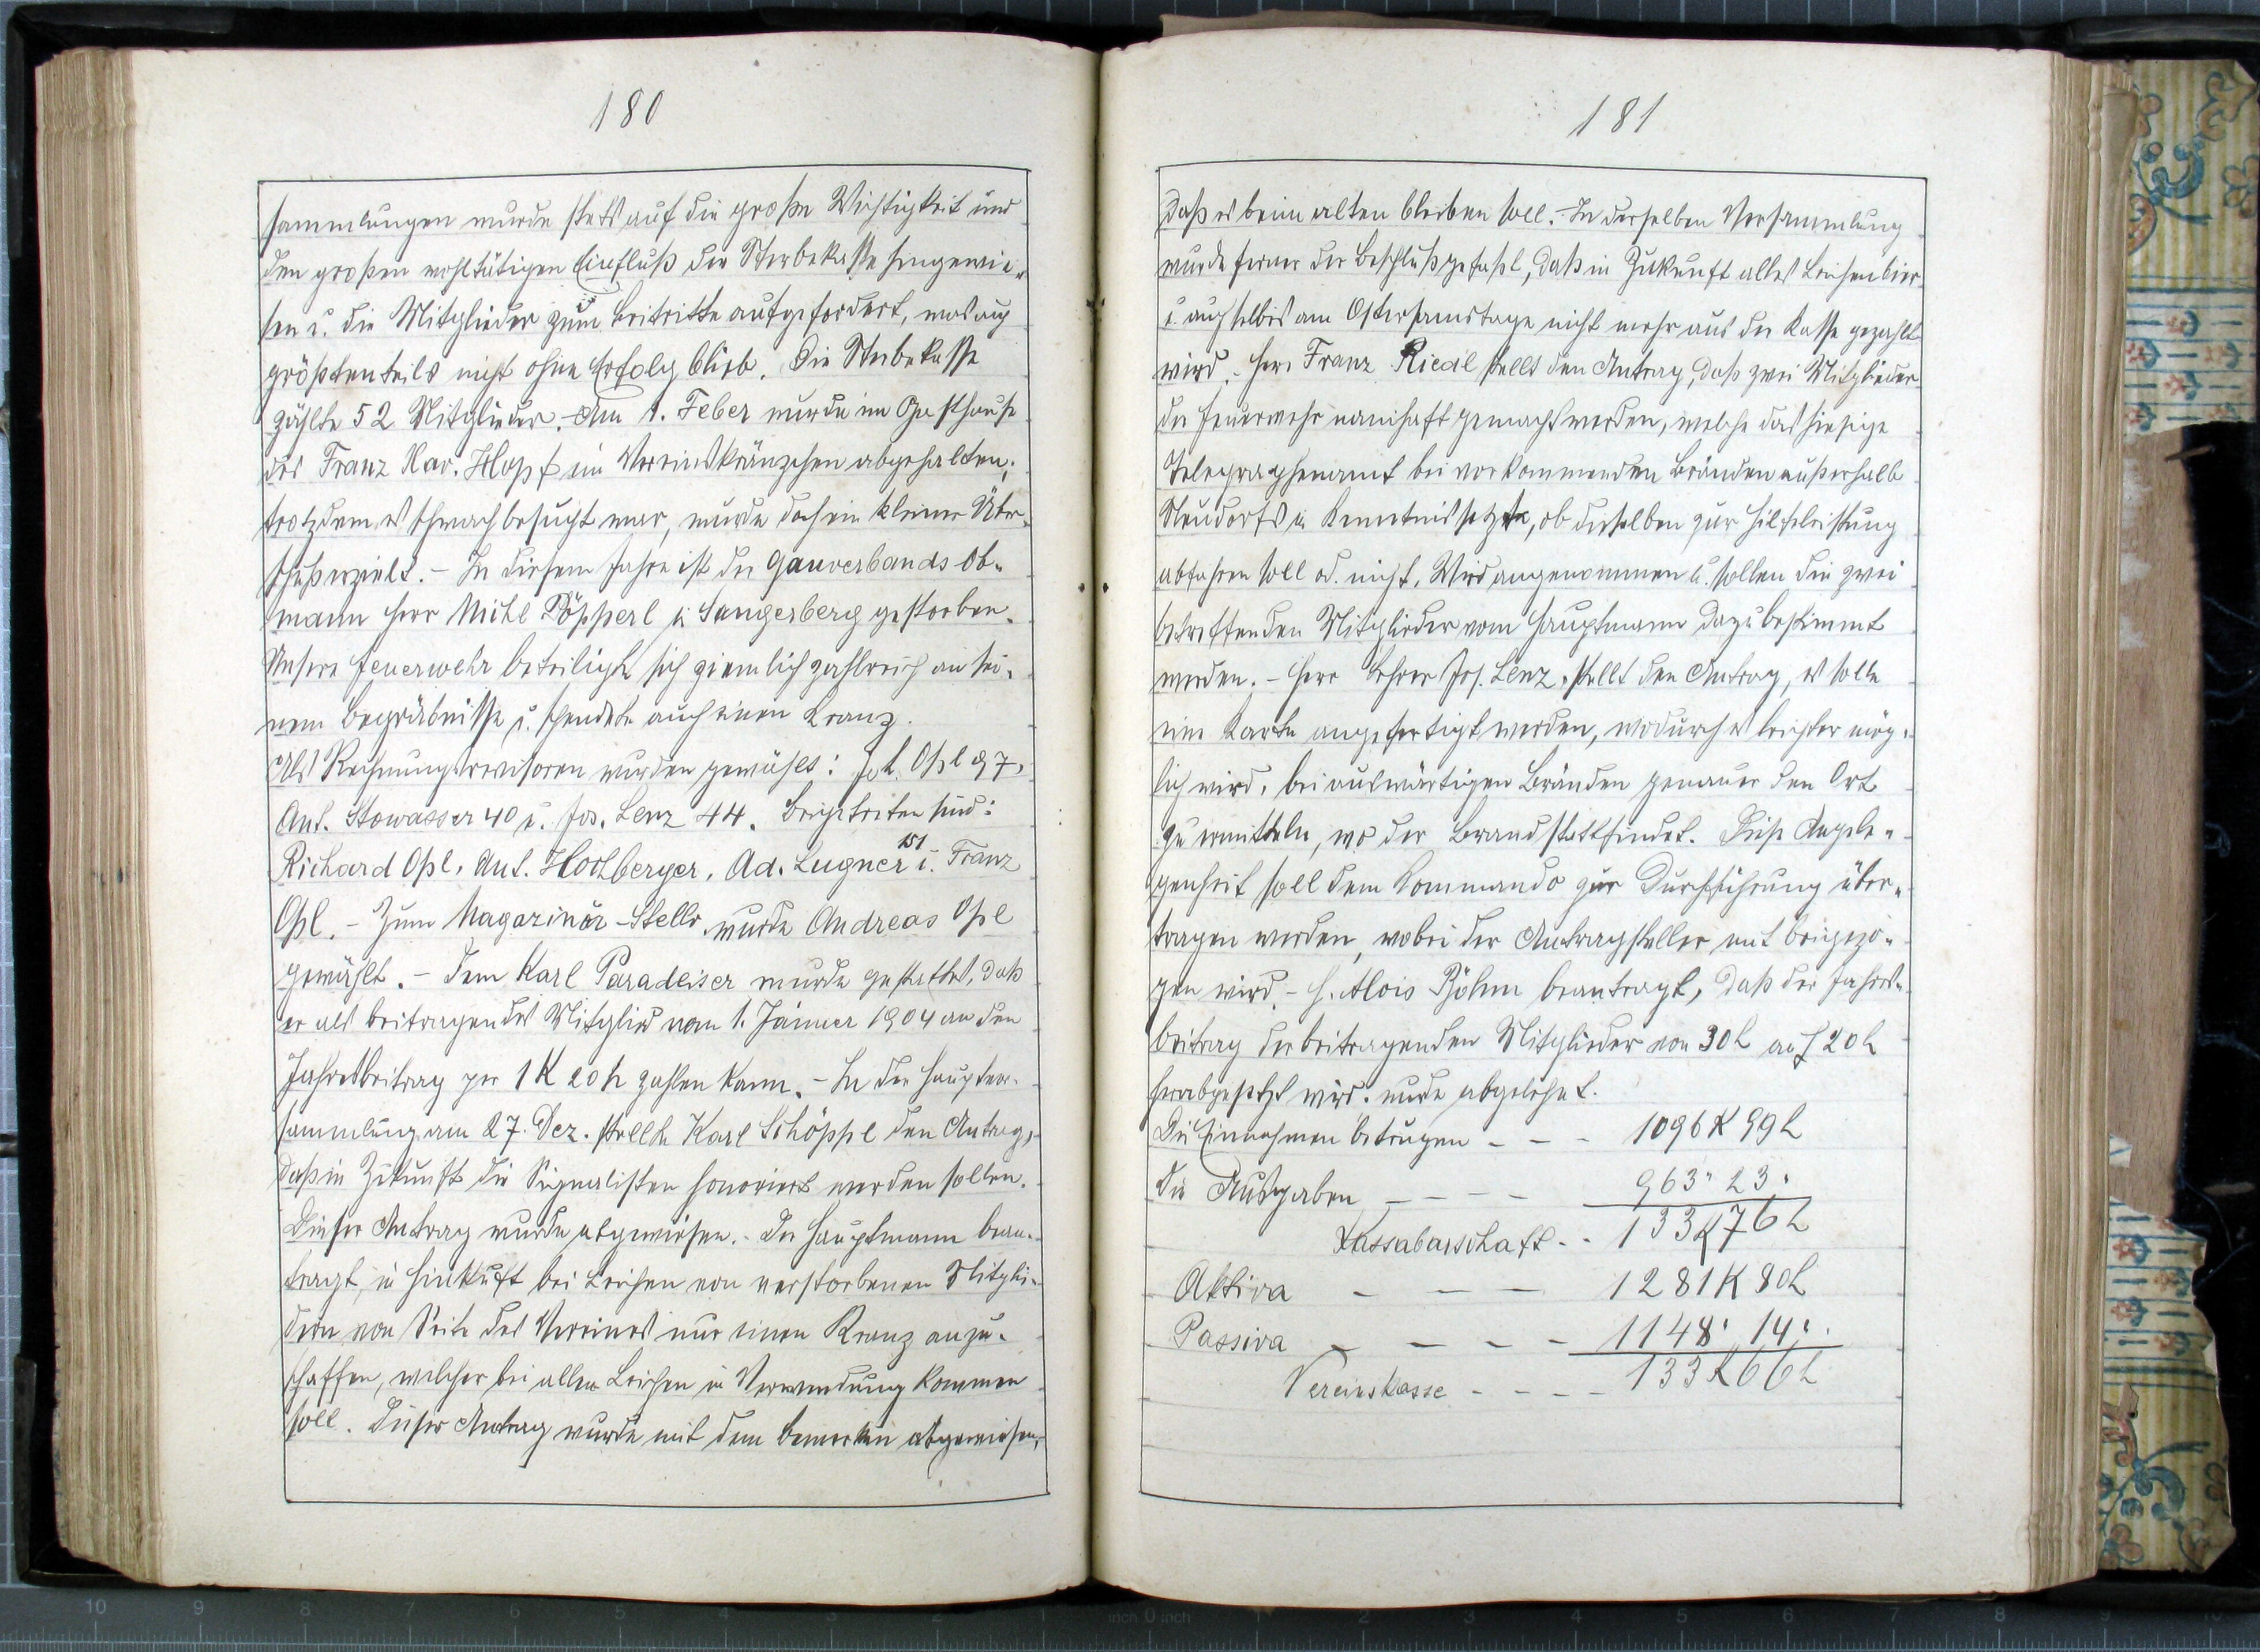 180
sammlungen wurde stets auf die große Wichtigkeit und
den großen wohltätigen Einfluß der Sterbekasse hingewie-
sen u. die Mitglieder zum Beitritte aufgefordert, was auch
größtenteils nicht ohne Erfolg blieb. Die Sterbekasse
zählte 52 Mitglieder. - Am 1. Feber wurde im Gasthause
des Franz Xav. Hopf ein Vereinskränzchen abgehalten;
trotzdem es schwach besucht war, wurde doch ein kleiner Über-
schuß erzielt. - In diesem Jahre ist der Gauverbands Ob-
mann Herr Michl Pöpperl in Sangerberg gestorben.
Unsere Feuerwehr beteiligte sich ziemlich zahlreich an sei-
nem Begräbnisse u. spendete auch einen Kranz.
Als Rechnungsrevisoren wurden gewählt: Joh. Opl 97,
Ant. Stowasser 40 u. Jos. Lenz 44. Beigetreten sind:
Richard Opl, Ant. Hochberger, Ad. Lugner 151 u. Franz
Opl. - Zum Magazinär-Stellv. wurde Andreas Opl
gewählt. - Dem Karl Paradeiser wurde gestattet, daß
er als beitragendes Mitglied vom 1. Jänner 1904 an den
Jahresbeitrag per 1 K 20 h zahlen kann. - In der Hauptver-
sammlung am 27. Dez. stellte Karl Schöppl den Antrag,
daß in Zukunft die Signalisten honoriert werden sollen.
Dieser Antrag wurde abgewiesen. - Der Hauptmann bean-
tragt, in Hinkunft bei Leichen von verstorbenen Mitglie-
dern von Seite des Vereines nur einen Kranz anzu-
schaffen, welcher bei allen Leichen in Verwendung kommen
soll. Dieser Antrag wurde mit dem Bemerken abgewiesen,
181
daß es beim alten bleiben soll. - In derselben Versammlung
wurde ferner der Beschluß gefaßt, daß in Zukunft alles Leichenbier
u. auch selbes am Ostersamstage nicht mehr aus der Kasse gezahlt
wird. - Herr Franz Riedl stellt den Antrag, daß zwei Mitglieder
der Feuerwehr namhaft gemacht werden, welche das hiesige
Telegraphenamt bei vorkommenden Bränden außerhalb
Neudorfs in Kenntnis setzte, ob dieselben zur Hilfeleistung
abfahren soll od. nicht. Wird angenommen u. sollen die zwei
betreffenden Mitglieder vom Hauptmann dazu bestimmt
werden. - Herr Lehrer Jos. Lenz stellt den Antrag, es solle
eine Karte angefertigt werden, wodurch es leichter mög-
lich wird, bei auswärtigen Bränden genauer den Ort
zu ermitteln, wo der Brand stattfindet. Diese Angele-
genheit soll dem Kommando zur Durchführung über-
tragen werden, wobei der Antragsteller mit beigezo-
gen wird. - H. Alois Böhm beantragt, daß der Jahres-
beitrag der beitragenden Mitglieder von 30 h auf 20 h
herabgesetzt wird. wurde abgelehnt.
Die Einnahmen betrugen - - - 1096 K 99 h
die Ausgaben - - - - 963 " 23 "
Kassabarschaft - - 133 K 76 h
Aktiva - - - 1281 K 80 h
Passiva - - - - 1148 " 14 "
Vereinskasse - - - - 133 K 66 h